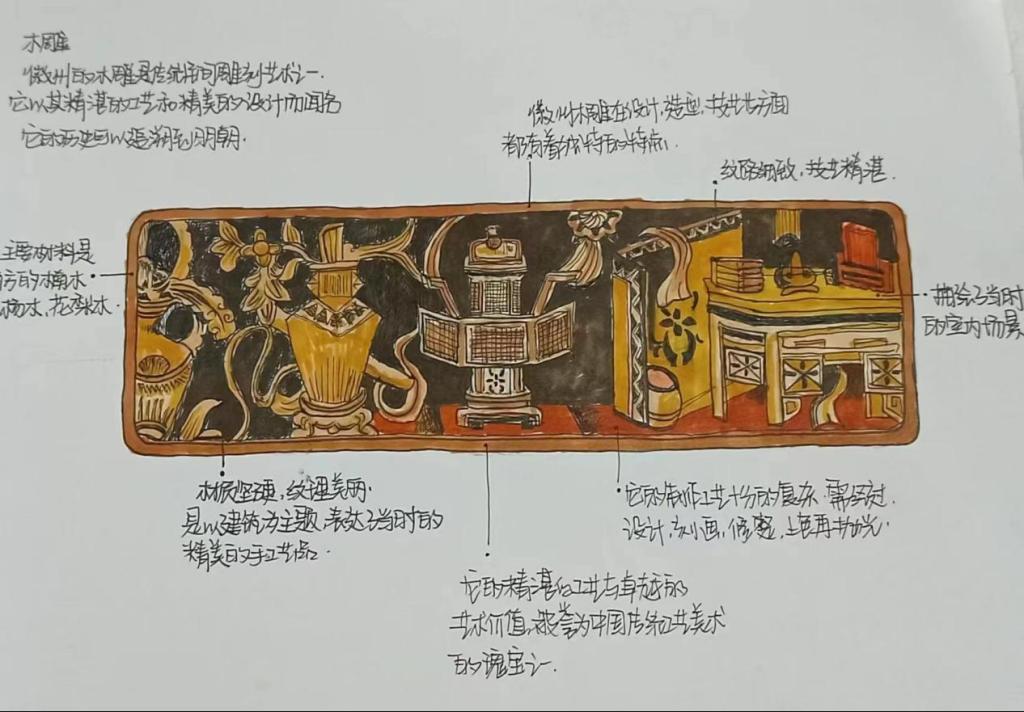 木雕
徽州的木雕是传统民间雕刻艺术之一.
它以其精湛的工艺和精美的设计而闻名
它的历史可以追溯到明朝.
徽州木雕在设计,造型,技艺等方面
都有着独特的特点.
纹路细致,技艺精湛.
主要材料是
方的楠木
杨木,花梨木.
描绘了当时
的室内场景
材质坚硬,纹理美丽.
是以建筑为主题,表达了当时的
精美的手工艺品.
它的制作工艺十分的复杂.需经过.
设计,刻画,修整,上色再抛光
它的精湛的工艺与卓越的
艺术价值,被誉为中国传统工艺美术
的瑰宝之一.